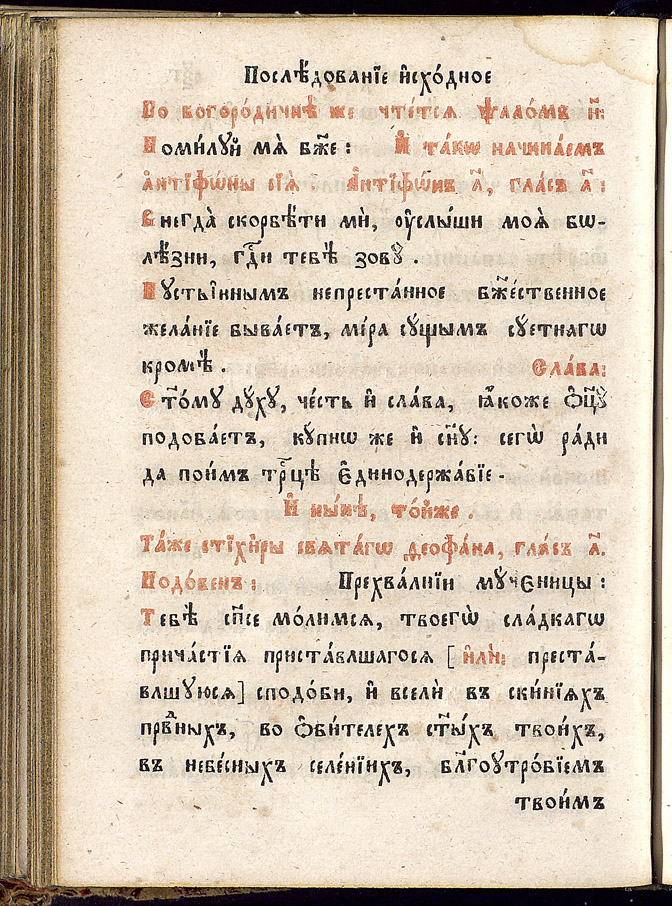 Послѣ́дованїе и҆схо́дное
По богоро́дичнѣ же чте́тсѧ ѱало́мъ н҃:
Поми́лꙋй мѧ̀ бж҃е : И҆ та́кѡ начина́емъ
а҆нтїфѡ́ны сїѧ̀ . А҆нтїфѡ́нъ а҃, гла́съ а҃:
Внегда̀ скорбѣ́ти мѝ, ᲂу҆слы́ши моѧ̀ бѡ-
лѣ́зни, гдⷭ҇и тебѣ̀ зовꙋ̀ .
Пꙋсты̑ннымъ непреста́нное бж҃е́ственное
жела́нїе быва́етъ, мі́ра сꙋ́щымъ сꙋ́етнагѡ
кромѣ̀ . Сла́ва:
Ст҃о́мꙋ дꙋ́хꙋ, че́сть и҆ сла́ва, ꙗ҆́коже ѻ҆ц҃ꙋ̀
подоба́етъ, кꙋ́пнѡ же и҆ сн҃ꙋ: сегѡ̀ ра́ди
да пои́мъ трⷪ҇цѣ є҆динодержа́вїе .
И҆ ны́нѣ, то́йже .
Та́же стїхи̑ры свѧта́гѡ Ѳеофа́на, гла́съ а҃.
Подо́бенъ : Прехва́льнїи мꙋ́ченицы :
Тебѣ̀ сп҃се мо́лимсѧ, твоегѡ̀ сла́дкагѡ
прича́стїѧ преста́вльшагосѧ [ и҆лѝ: преста́-
вльшꙋюсѧ] сподо́би, и҆ вселѝ въ ски́нїѧхъ
прⷣвныхъ, во ѻ҆би́телехъ ст҃ы́хъ твои́хъ,
въ небе́сныхъ селе́нїихъ, бл҃гоꙋтро́бїемъ
твои́мъ